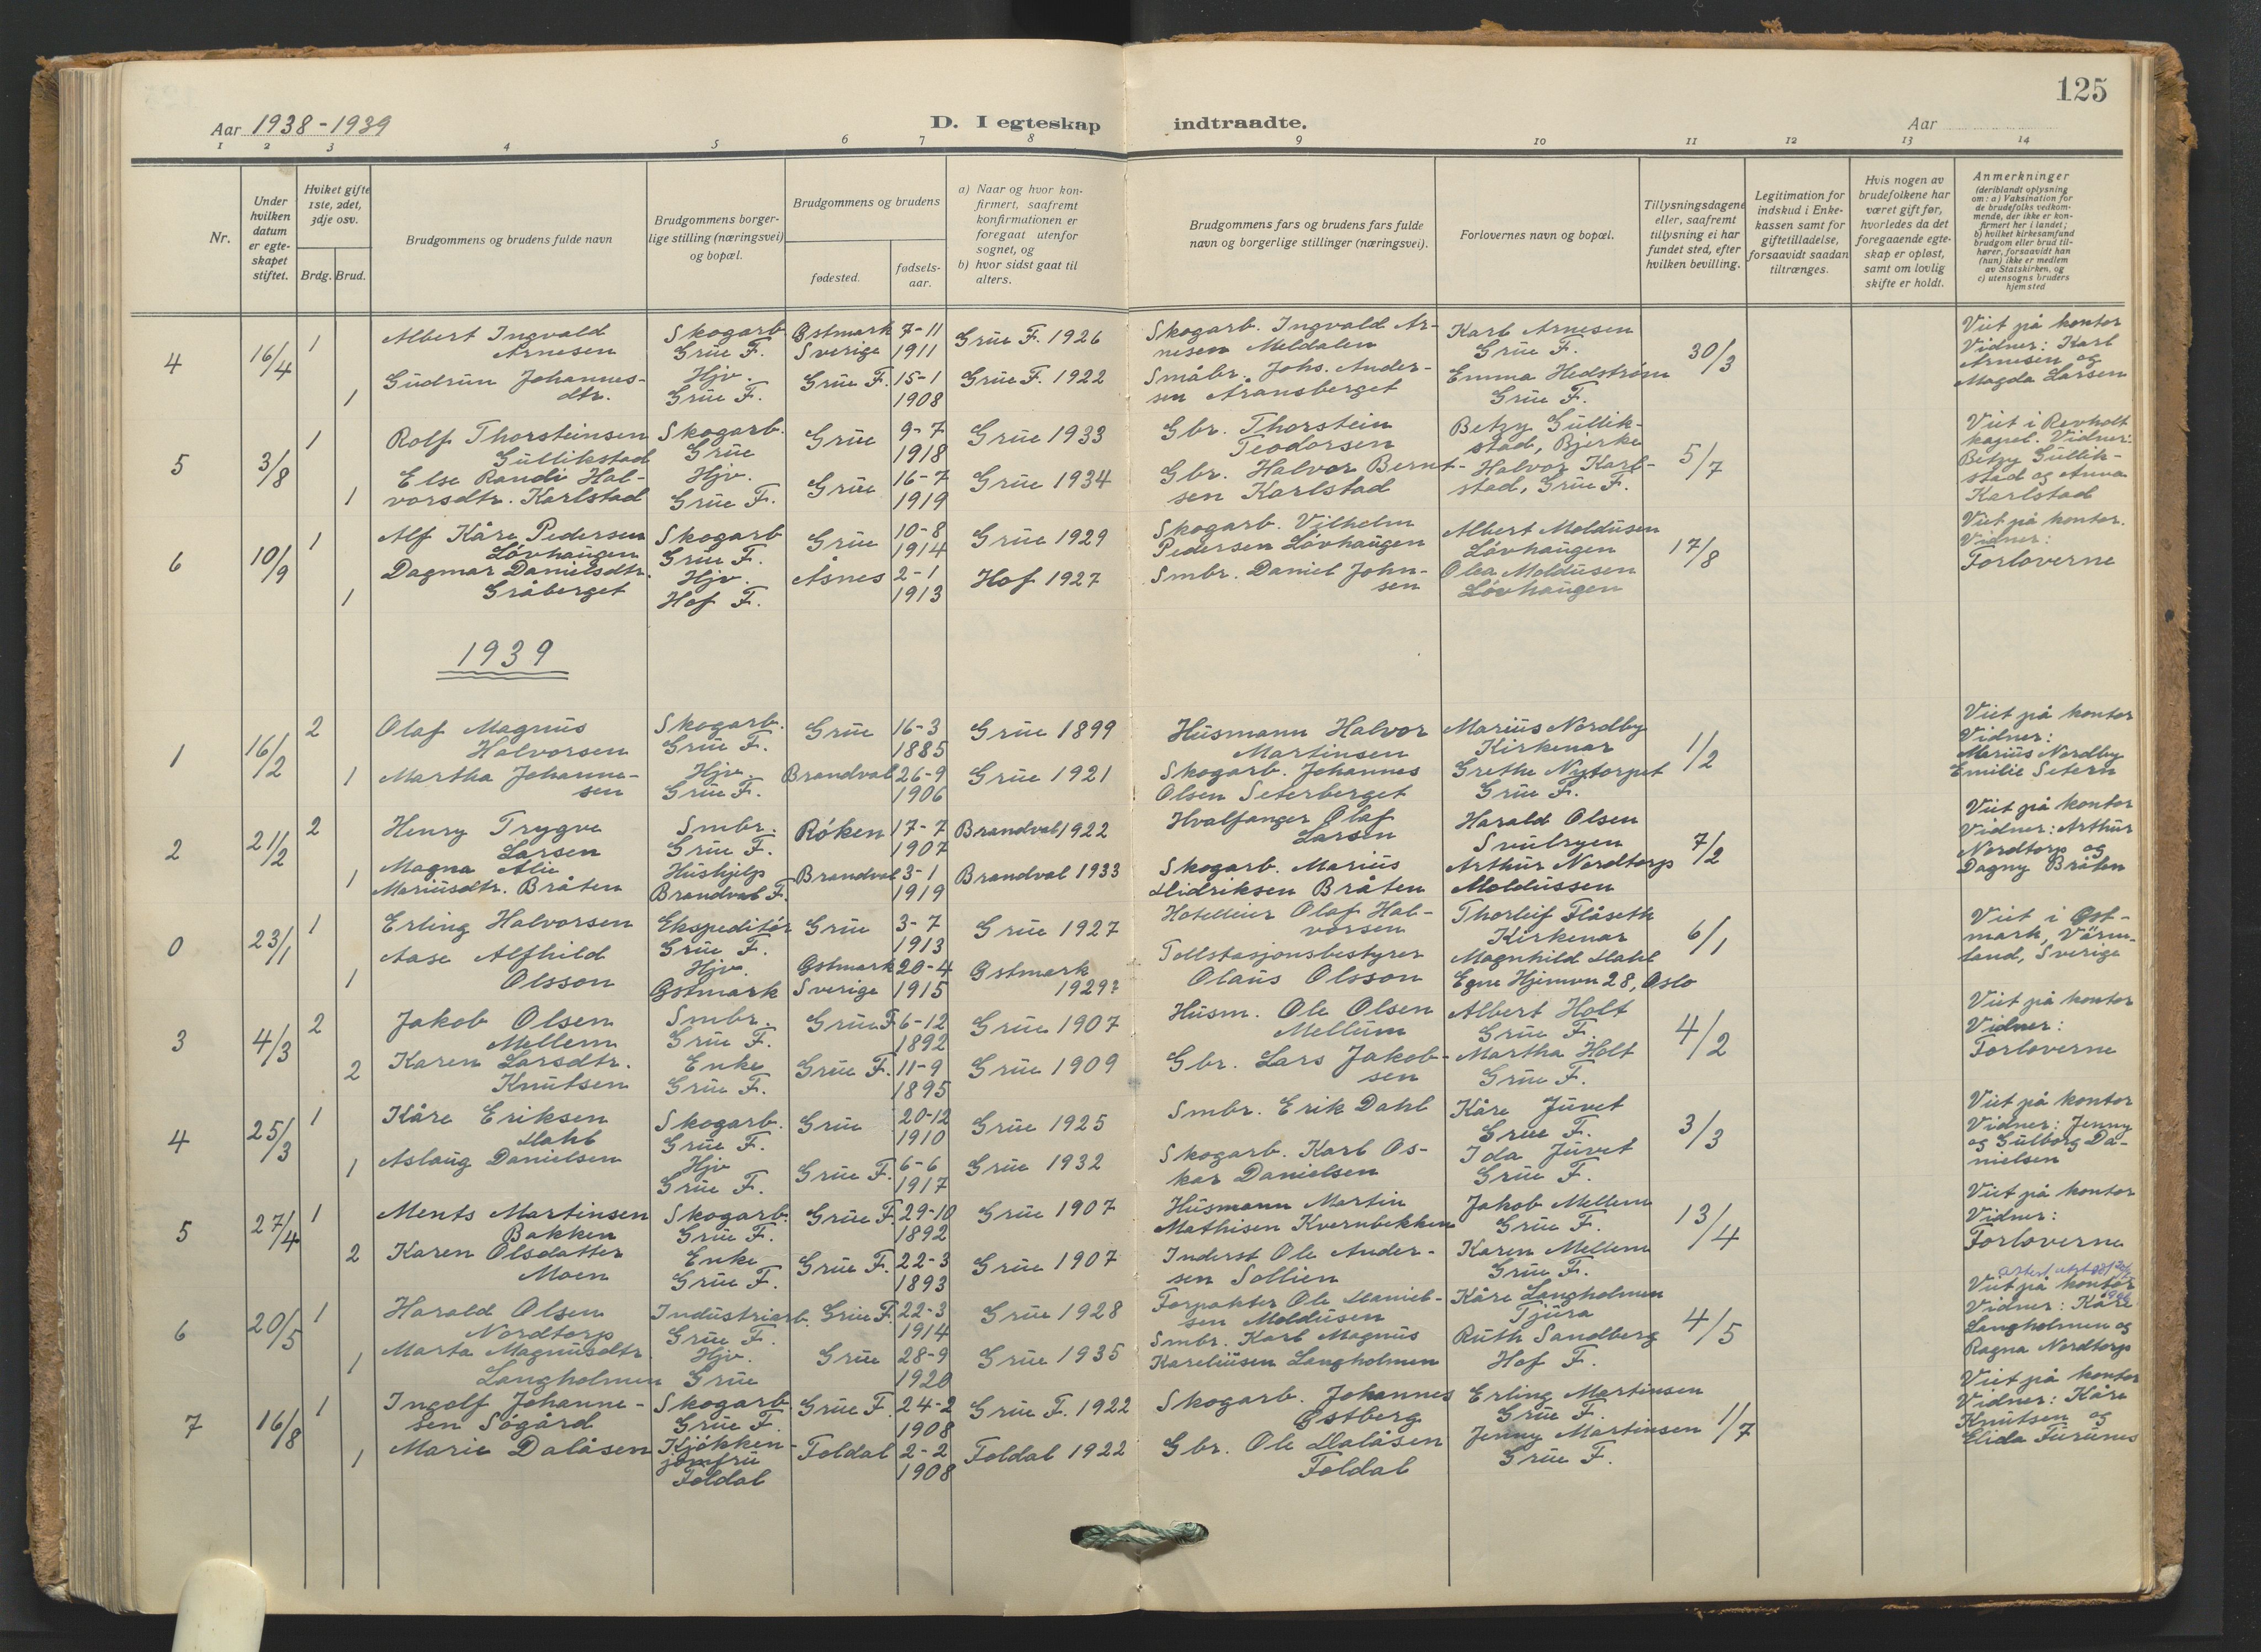 125
Aar 1938-1939
D. I egteskap indtraadte.
Aar
1 2 3 4 5 6 7 8 9 10 11 12 13 14
Nr.
Under hvilken datum er egteskapet stiftet.
Hviket gifte 1ste, 2det, 3dje osv.
Brdg. Brud.
Brudgommens og brudens fulde navn
Brudgommens borgerlige stilling (næringsvei) og bopæl.
Brudgommens og brudens
fødested.
fødselsaar.
a) Naar og hvor konfirmert, saafremt konfirmationen er foregaat utenfor sognet, og
b) hvor sidst gaat til alters.
Brudgommens fars og brudens fars fulde navn og borgerlige stillinger (næringsvei).
Forlovernes navn og bopæl.
Tillysningsdagene eller, saafremt tillysning ei har fundet sted, efter hvilken bevilling.
Legitimation for indskud i Enkekassen samt for giftetilladelse, forsaavidt saadan tiltrænges.
Hvis nogen av brudefolkene har været gift før, hvorledes da det foregaaende egteskap er opløst, samt om lovlig skifte er holdt.
Anmerkninger
(deriblandt oplysning om: a) Vaksination for de brudefolks vedkommende, der ikke er konfirmert her i landet; b) hvilket kirkesamfund brudgom eller brud tilhører, forsaavidt han (hun) ikke er medlem av Statskirken, og c) utensogns bruders hjemsted
4 16/4 1 Albert Ingvald Arnesen Skogarb. Grue F. Östmark Sverige 7-11 1911 Grue F. 1926 Skogarb. Ingvald Arnesen Meldalen Karl Arnesen Grue F. 30/3 Viet på kontor Vidner: Karl Arnesen og Magda Larsen
1 Gudrun Johannesdtr. Hjv. Grue F. Grue F. 15-1 1908 Grue F. 1922 Småbr. Johs. Andersen Åransberget Emma Hedström Grue F.
5 3/8 1 Rolf Thorsteinsen Gullikstad Skogarb. Grue Grue 9-7 1918 Grue 1933 Gbr. Thorstein Teodorsen Betzy Gullikstad, Bjerke 5/7 Viet i Revholt kapel. Vidner: Betzy Gullikstad og Anna Karlstad
1 Else Randi Halvorsdtr. Karlstad Hjv. Grue F. Grue 16-7 1919 Grue 1934 Gbr. Halvor Berntsen Karlstad Halvor Karlstad, Grue F.
6 10/9 1 Alf Kåre Pedersen Lövhaugen Skogarb Grue F. Grue 10-8 1914 Grue 1929 Skogarb. Vilhelm Pedersen Lövhaugen Albert Moldusen Lövhaugen 17/8 Viet på kontor. Vidner: Forloverne
1 Dagmar Danielsdtr. Gråberget Hjv. Hof F. Åsnes 2-1 1913 Hof 1927 Smbr. Daniel Johnsen Olea Moldusen Lövhaugen
1939
1 16/2 2 Olaf Magnus Halvorsen Skogarb. Grue F. Grue 16-3 1885 Grue 1899 Husmann Halvor Martinsen Marius Nordby Kirkenær 1/2 Viet på kontor Vidner: Marius Nordby Emilie Setern
1 Martha Johannesen Hjv. Grue F. Brandval 26-9 1906 Grue 1921 Skogarb. Johannes Olsen Seterberget Grethe Nytorpet Grue F.
2 21/2 2 Henry Trygve Larsen Smbr. Grue F. Röken 17-7 1907 Brandval 1922 Hvalfanger Olaf Larsen Harald Olsen Svulryen 7/2 Viet på kontor Vidner: Arthur Nordtorp og Dagny Bråten
1 Magna Alie Mariusdtr. Bråten Hushjelp Brandval F. Brandval 3-1 1919 Brandval 1933 Skogarb. Marius Didriksen Bråten Arthur Nordtorp Moldussen
0 23/1 1 Erling Halvorsen Ekspeditör Grue F. Grue 3-7 1913 Grue 1927 Hotelleier Olaf Halvorsen Thorleif Flåseth Kirkenær 6/1 Viet i Östmark, Värmland, Sverige
1 Aase Alfhild Olsson Hjv. Östmark Östmark Sverige 20-4 1915 Östmark 1929? Tollstasjonsbestyrer Olaus Olsson Magnhild Dahl Egne Hjemvn 28, Oslo
3 4/3 2 Jakob Olsen Mellem Smbr. Grue F. Grue F. 6-12 1892 Grue 1907 Husm. Ole Olsen Mellum Albert Holt Grue F. 4/2 Viet på kontor Vidner: Forloverne
2 Karen Larsdtr. Knutsen Enke Grue F. Grue F. 11-9 1895 Grue 1909 Gbr. Lars Jakobsen Martha Holt Grue F.
4 25/3 1 Kåre Eriksen Dahl Skogarb. Grue F. Grue 20-12 1910 Grue 1925 Smbr. Erik Dahl Kåre Juvet Grue F. 3/3 Viet på kontor Vidner: Jenny og Gulborg Danielsen
1 Aslaug Danielsen Hjv Grue F. Grue F. 6-6 1917 Grue 1932 Skogarb. Karl Oskar Danielsen Ida Juvet Grue F.
5 27/4 1 Ments Martinsen Bakken Skogarb. Grue F. Grue F. 29-10 1892 Grue 1907 Husmann Martin Mathisen Kvernbekken Jakob Mellem Grue F. 13/4 Viet på kontor Vidner: Forloverne
2 Karen Olsdatter Moen Enke Grue F. Grue F. 22-3 1893 Grue 1907 Inderst Ole Andersen Sollien Karen Mellem Grue F.
6 20/5 1 Harald Olsen Nordtorp Industriarb. Grue F. Grue F. 22-3 1914 Grue 1928 Forpakter Ole Danielsen Moldusen Kåre Langholmen Tjura 4/5 Viet på kontor Vidner: Kåre Langholmen og Ragna Nordtorp
1 Marta Magnusdtr. Langholmen Hjv. Grue Grue 28-9 1920 Grue 1935 Smbr. Karl Magnus Kareliusen Langholmen Ruth Sandberg Hof F.
7 16/8 1 Ingolf Johannesen Sögård Skogarb. Grue F. Grue F. 24-2 1908 Grue F. 1922 Skogarb. Johannes Östberg Erling Martinsen Grue F. 1/7 Viet på kontor Vidner: Kåre Knutsen og Elida Furunes
1 Marie Dalåsen Kjökkenjomfru Foldal Foldal 2-2 1908 Foldal 1922 Gbr. Ole Dalåsen Foldal Jenny Martinsen Grue F.